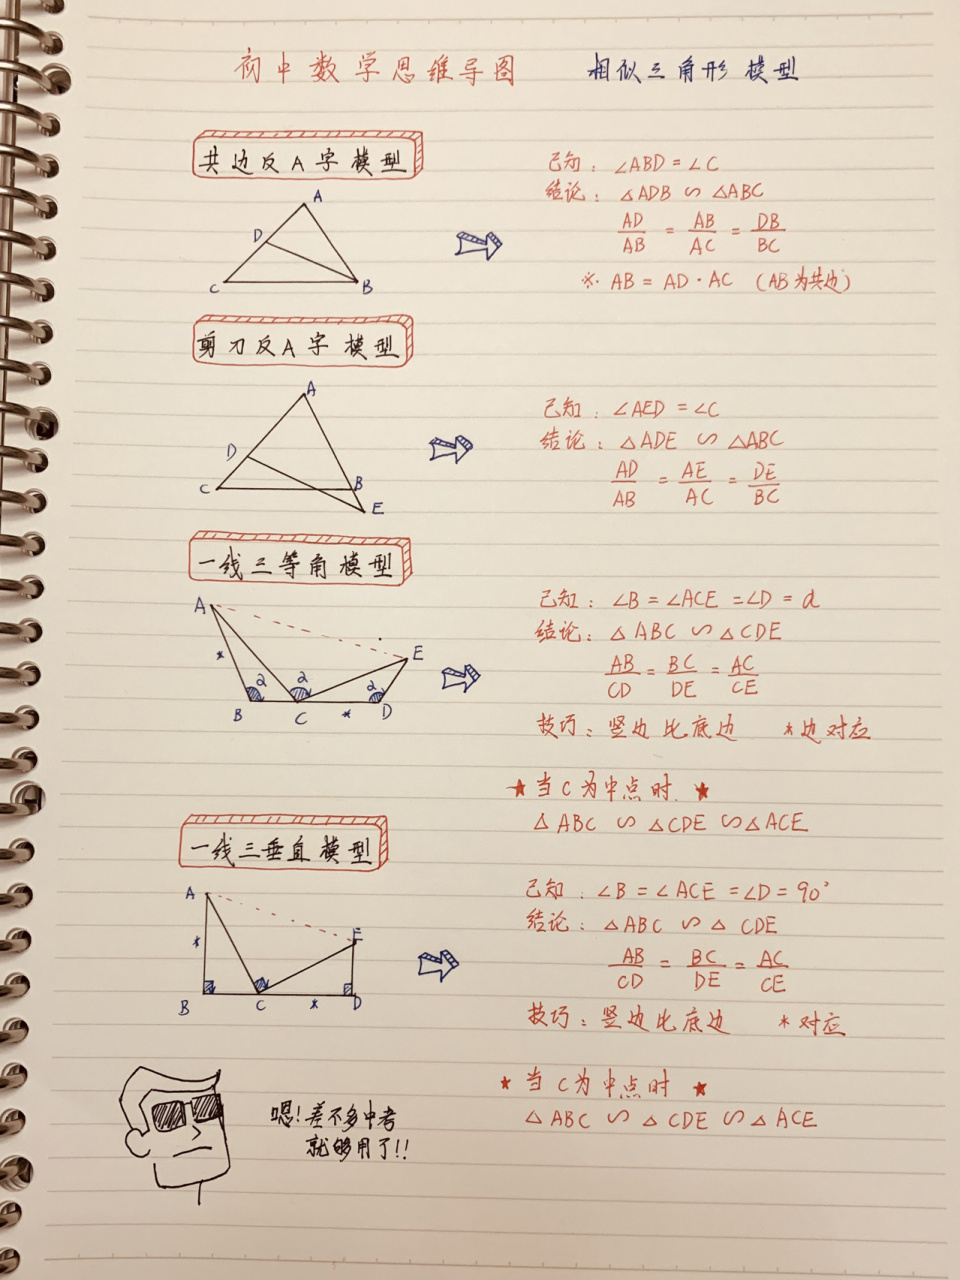 初中数学思维导图 相似三角形模型
共边反A字模型
A
D
C
B
已知：∠ABD=∠C
结论：△ADB ∽ △ABC
AD/AB = AB/AC = DB/BC
※ AB = AD·AC （AB为共边）
剪刀反A字模型
A
D
C
B
E
已知：∠AED=∠C
结论：△ADE ∽ △ABC
AD/AB = AE/AC = DE/BC
一线三等角模型
A
E
*
α α α
B C * D
已知：∠B=∠ACE=∠D=α
结论：△ABC ∽ △CDE
AB/CD = BC/DE = AC/CE
技巧：竖边比底边 *边对应
★当C为中点时★
△ABC ∽ △CDE ∽ △ACE
一线三垂直模型
A
E
*
B C * D
已知：∠B=∠ACE=∠D=90°
结论：△ABC ∽ △CDE
AB/CD = BC/DE = AC/CE
技巧：竖边比底边 *对应
★当C为中点时★
△ABC ∽ △CDE ∽ △ACE
嗯！差不多中考
就够用了!!